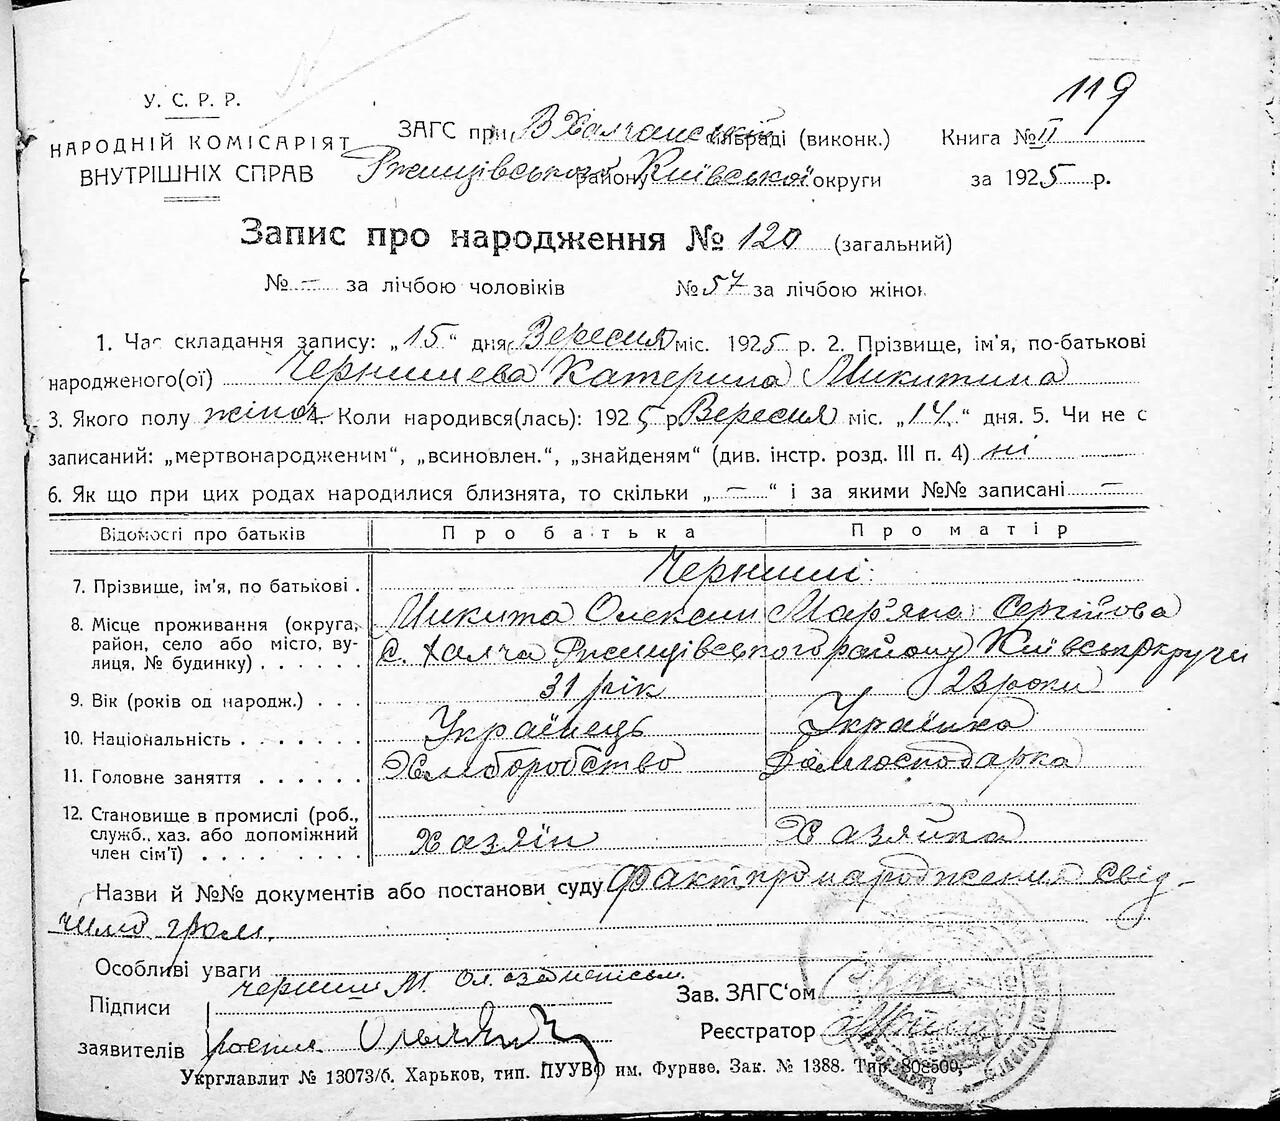 119
У. С. Р. Р.
НАРОДНІЙ КОМІСАРІЯТ
ВНУТРІШНІХ СПРАВ
ЗАГС при В Халчанській сільраді (виконк.)
Ржищівського району Київської округи
Книга № II
за 1925 р.
Запис про народження № 120 (загальний)
№ — за лічбою чоловіків № 57 за лічбою жінок
1. Час складання запису: „15“ дня Вересня міс. 1925 р. 2. Прізвище, ім'я, по-батькові
народженого(ої) Чернишева Катерина Микитина
3. Якого полу жіноч 4. Коли народився(лась): 1925 р. Вересня міс. „14“ дня. 5. Чи не є
записаний: „мертвонародженим“, „всиновлен.“, „знайденям“ (див. інстр. розд. III п. 4) ні
6. Як що при цих родах народилися близнята, то скільки „—“ і за якими №№ записані —
Відомості про батьків Про батька Про матір
7. Прізвище, ім'я, по батькові . Черниші
Микита Олексин Мар'яна Сергійова
8. Місце проживання (округа, район, село або місто, вулиця, № будинку) . . . . . . с. Халча Ржищівського району Київськ округи
9. Вік (років од народж.) . . . 31 рік 23 роки
10. Національність . . . . . . . Українець Українка
11. Головне заняття . . . . . . Хліборобство Домгосподарка
12. Становище в промислі (роб., служб., хаз. або допоміжний член сім'ї) . . . . . . . . Хазяїн Хазяйка
Назви й №№ документів або постанови суду Факт про народження свід-
чило гром.
Особливі уваги
Підписи
заявителів
Черниш М. Ол.
Зав. ЗАГС'ом
Реєстратор
Укрглавліт № 13073/б. Харьков, тип. ПУУВО им. Фрунзе. Зак. № 1388. Тир. 808500.